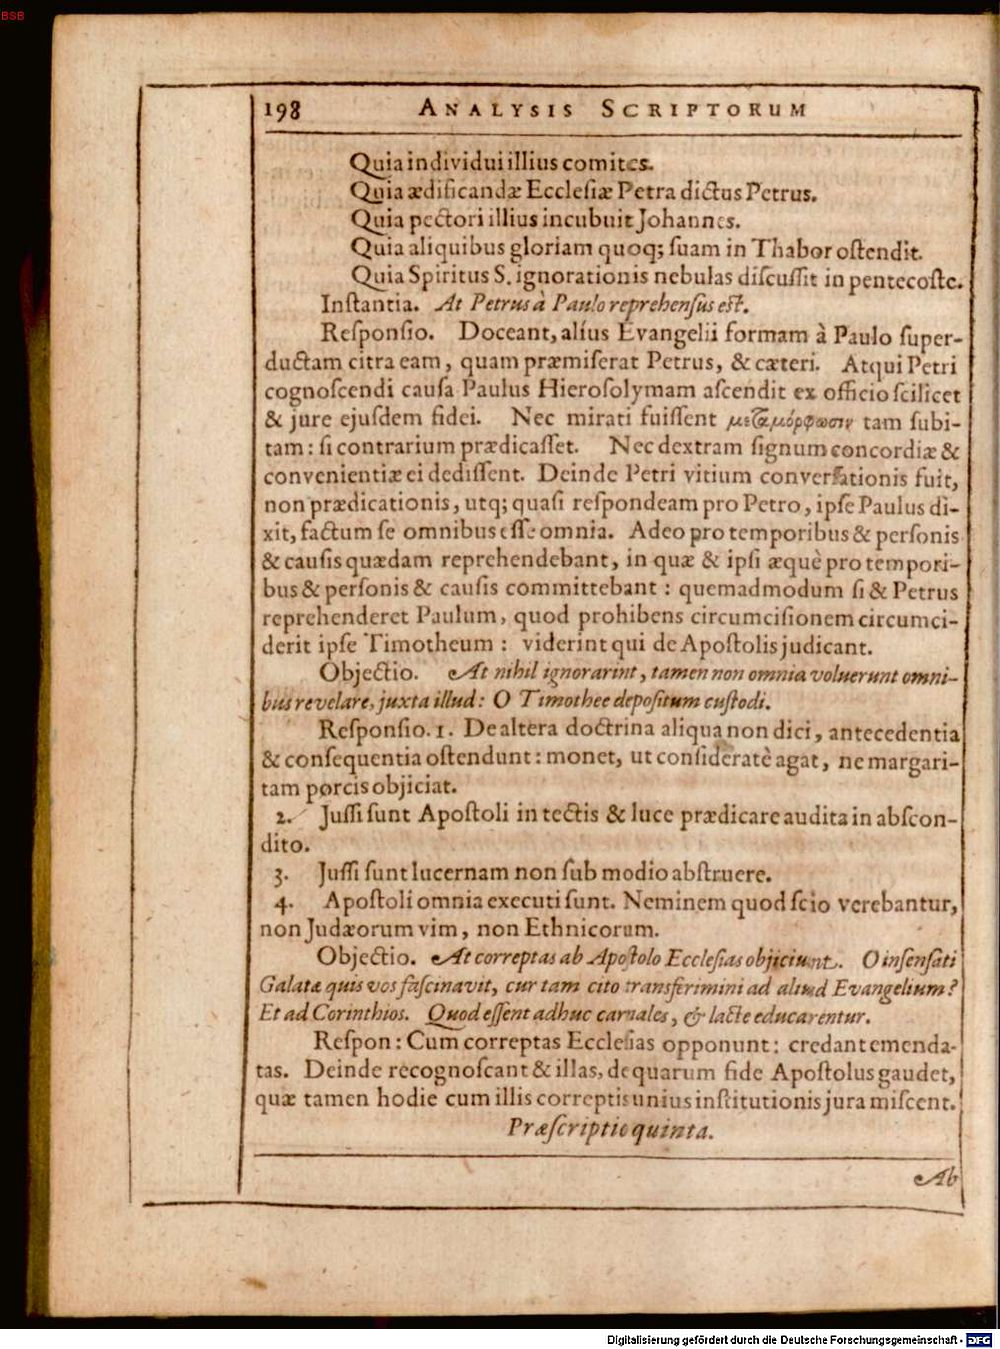 BSB
198 ANALYSIS SCRIPTORUM
Quia individui illius comites.
Quia ædificandæ Ecclesiæ Petra dictus Petrus.
Quia pectori illius incubuit Johannes.
Quia aliquibus gloriam quoq; suam in Thabor ostendit.
Quia Spiritus S. ignorationis nebulas discussit in pentecoste.
Instantia. At Petrus à Paulo reprehensus est.
Responsio. Doceant, alius Evangelii formam à Paulo super-
ductam citra eam, quam præmiserat Petrus, & cæteri. Atqui Petri
cognoscendi causa Paulus Hierosolymam ascendit ex officio scilicet
& jure ejusdem fidei. Nec mirati fuissent μεταμόρφωσιν tam subi-
tam: si contrarium prædicasset. Nec dextram signum concordiæ &
convenientiæ ei dedissent. Deinde Petri vitium conversationis fuit,
non prædicationis, utq; quasi respondeam pro Petro, ipse Paulus di-
xit, factum se omnibus esse omnia. Adeo pro temporibus & personis
& causis quædam reprehendebant, in quæ & ipsi æquè pro tempori-
bus & personis & causis committebant: quemadmodum si & Petrus
reprehenderet Paulum, quod prohibens circumcisionem circumci-
derit ipse Timotheum: viderint qui de Apostolis judicant.
Objectio. At nihil ignorarint, tamen non omnia voluerunt omni-
bus revelare, juxta illud: O Timothee depositum custodi.
Responsio. 1. De altera doctrina aliqua non dici, antecedentia
& consequentia ostendunt: monet, ut consideratè agat, ne margari-
tam porcis objiciat.
2. Jussi sunt Apostoli in tectis & luce prædicare audita in abscon-
dito.
3. Jussi sunt lucernam non sub modio abstruere.
4. Apostoli omnia executi sunt. Neminem quod scio verebantur,
non Judæorum vim, non Ethnicorum.
Objectio. At correptas ab Apostolo Ecclesias objiciunt. O insensati
Galatæ quis vos fascinavit, cur tam cito transferimini ad aliud Evangelium?
Et ad Corinthios. Quod essent adhuc carnales, & lacte educarentur.
Respon: Cum correptas Ecclesias opponunt: credant emenda-
tas. Deinde recognoscant & illas, de quarum fide Apostolus gaudet,
quæ tamen hodie cum illis correptis unius institutionis jura miscent.
Præscriptio quinta.
Ab
Digitalisierung gefördert durch die Deutsche Forschungsgemeinschaft - DFG